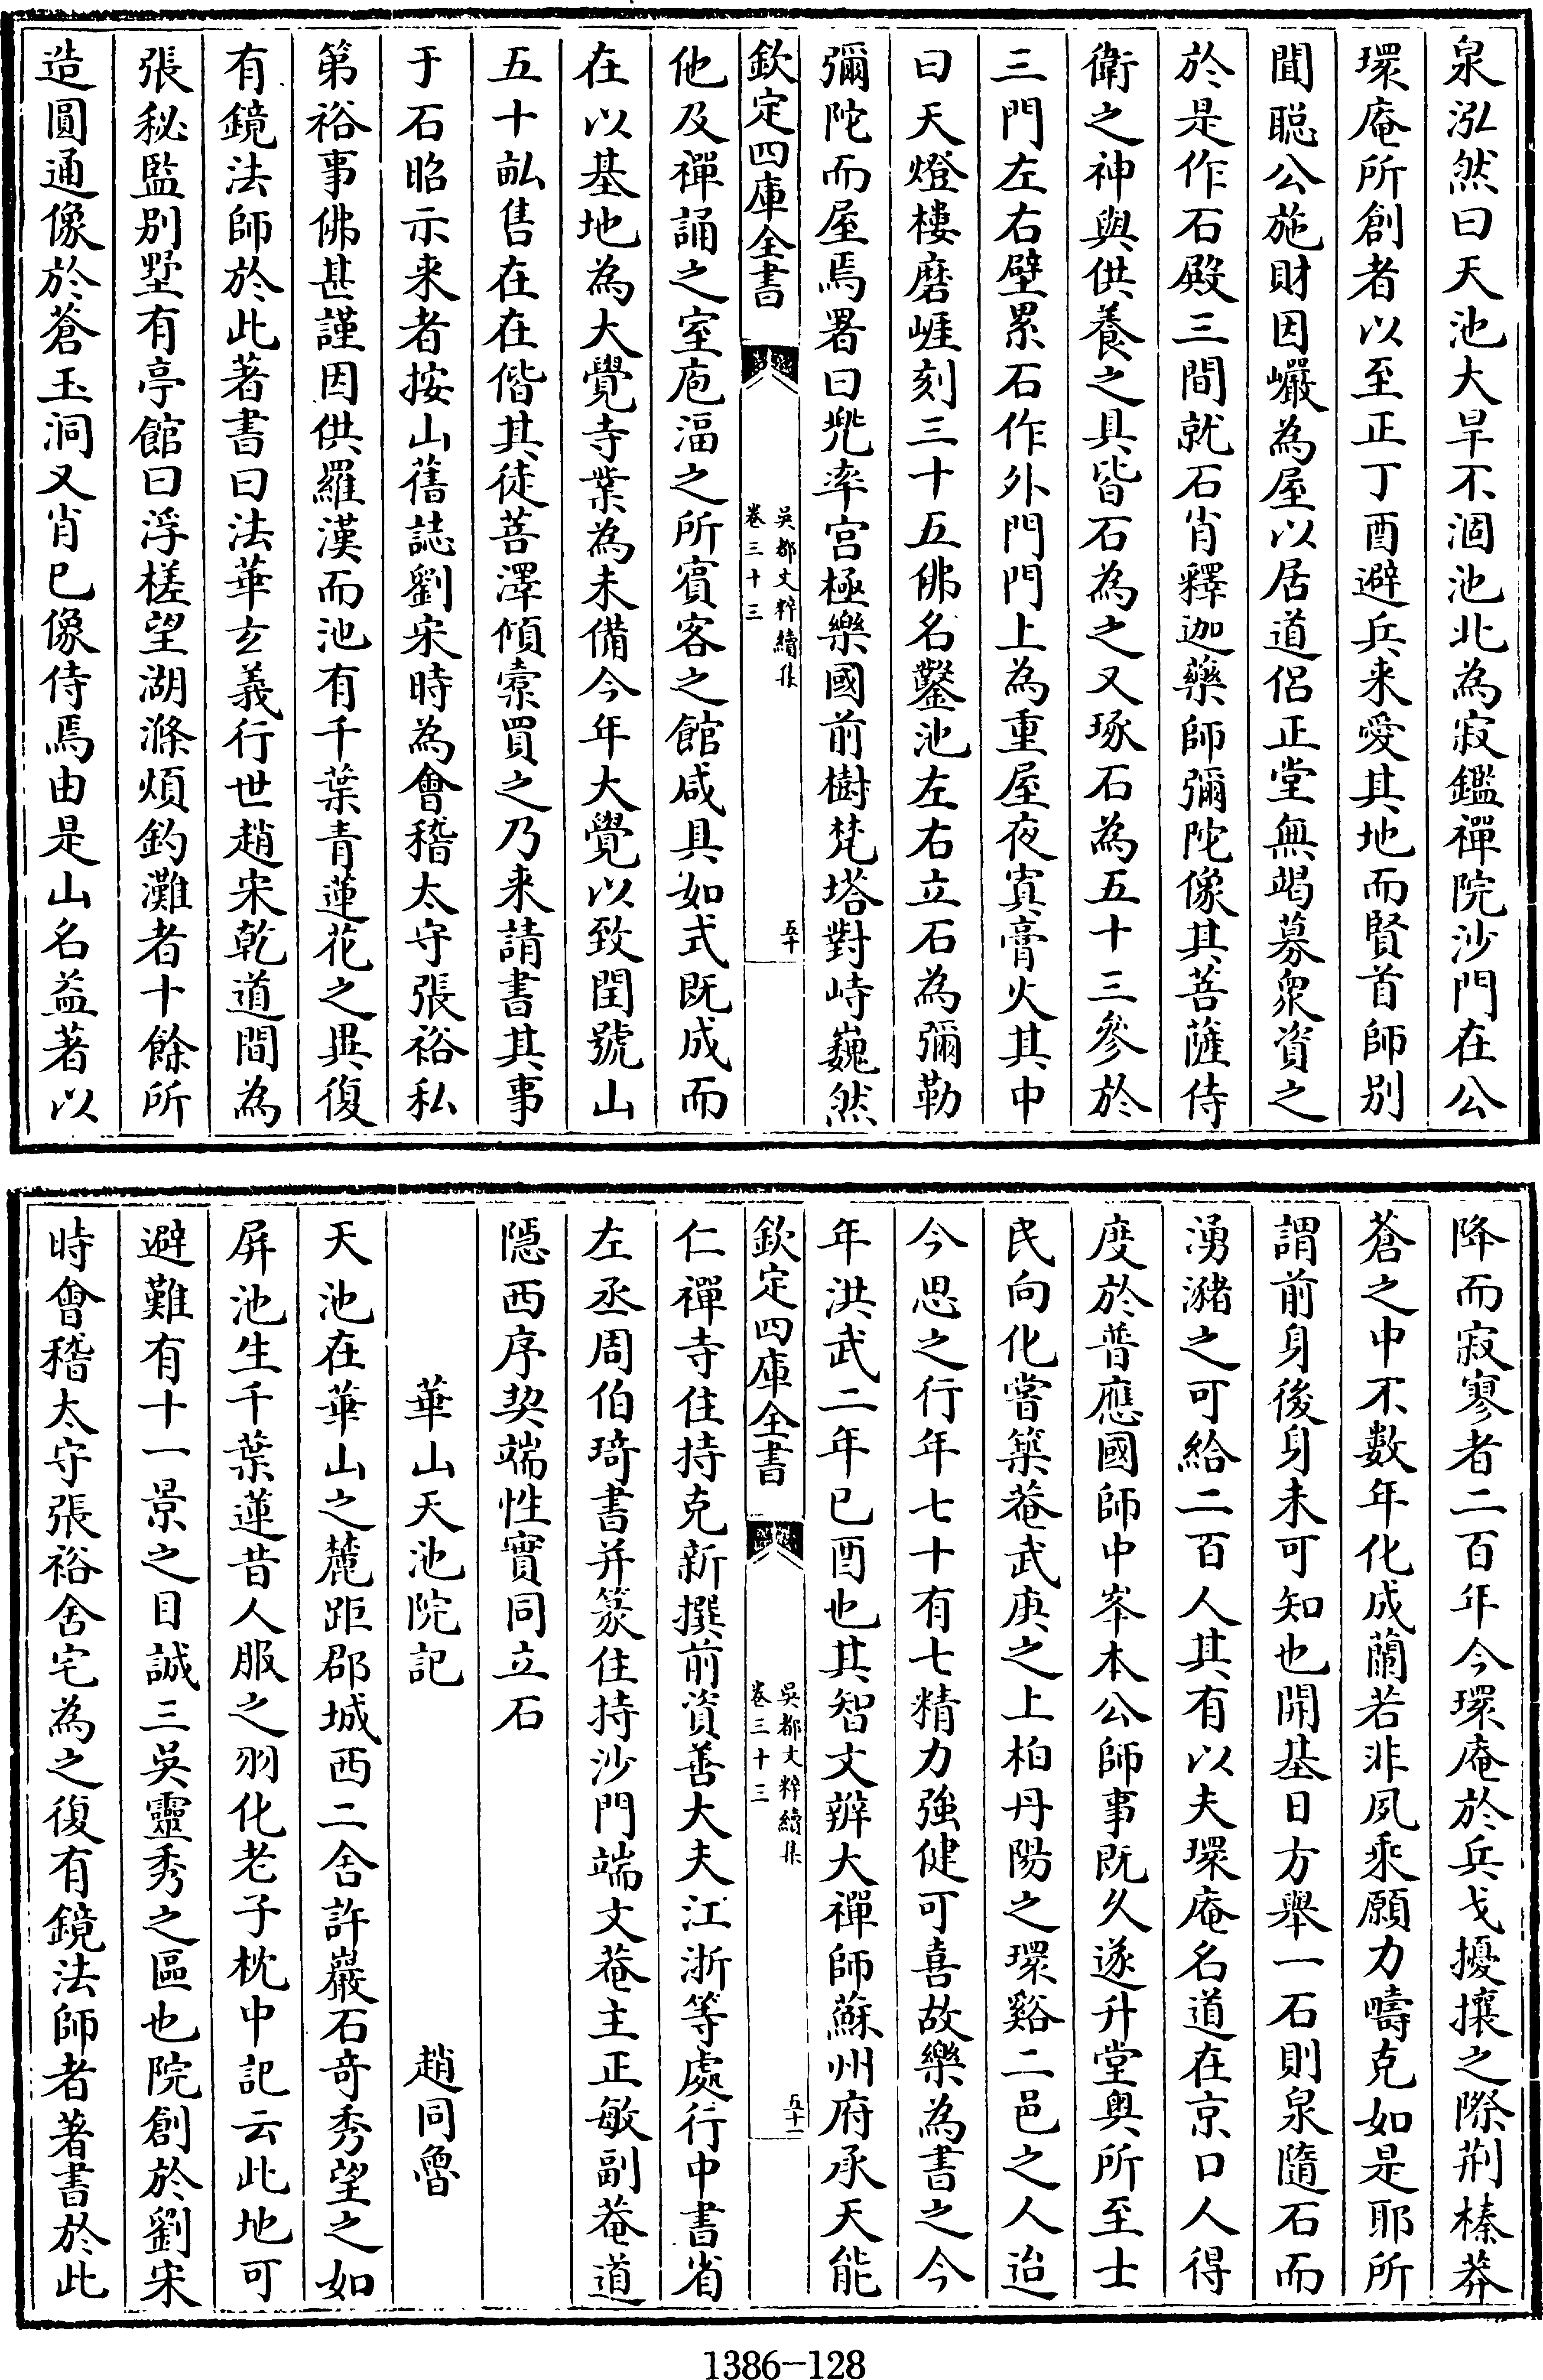 泉泓然曰天池大旱不涸池北為寂鑑禪院沙門在公
環庵所創者以至正丁酉避兵来愛其地而賢首師别
聞聪公施財因巗為屋以居道侣正堂無竭募衆資之
於是作石殿三間就石肖釋迦藥師彌陀像其菩薩侍
衛之神與供養之具皆石為之又琢石為五十三參於
三門左右壁累石作外門門上為重屋夜寘膏火其中
曰天燈樓磨崕刻三十五佛名鑿池左右立石為彌勒
彌陀而屋焉署曰兠率宫極樂國前樹梵塔對峙巍然
欽定四庫全書
吳都文粹續集
卷三十三
五十
他及禪誦之室庖湢之所賓客之館咸具如式既成而
在以基地為大覺寺業為未備今年大覺以致閏號山
五十畝售在在偕其徒菩澤傾橐買之乃来請書其事
于石昭示来者按山舊誌劉宋時為會稽太守張裕私
第裕事佛甚謹因供羅漢而池有千葉青蓮花之異復
有鏡法師於此著書曰法華玄義行世趙宋乾道間為
張秘監别墅有亭館曰浮槎望湖滌煩釣灘者十餘所
造圓通像於蒼玉洞又肖巳像侍焉由是山名益著以
降而寂寥者二百年今環庵於兵戈擾攘之際荆榛莽
蒼之中不數年化成蘭若非夙乘願力疇克如是耶所
謂前身後身未可知也開基日方舉一石則泉隨石而
湧瀦之可給二百人其有以夫環庵名道在京口人得
度於普應國師中峯本公師事既久遂升堂奥所至士
民向化嘗築菴武庚之上柏丹陽之環谿二邑之人迨
今思之行年七十有七精力強健可喜故樂為書之今
年洪武二年巳酉也其智文辨大禪師蘇州府承天能
欽定四庫全書
吳都文粹續集
卷三十三
五十一
仁禪寺住持克新撰前資善大夫江浙等處行中書省
左丞周伯琦書并篆住持沙門端文菴主正敏副菴道
隱西序契端性實同立石
華山天池院記　趙同魯
天池在華山之麓距郡城西二舍許巖石竒秀望之如
屏池生千葉蓮昔人服之羽化老子枕中記云此地可
避難有十一景之目誠三吳靈秀之區也院創於劉宋
時會稽太守張裕舍宅為之復有鏡法師者著書於此
1386-128